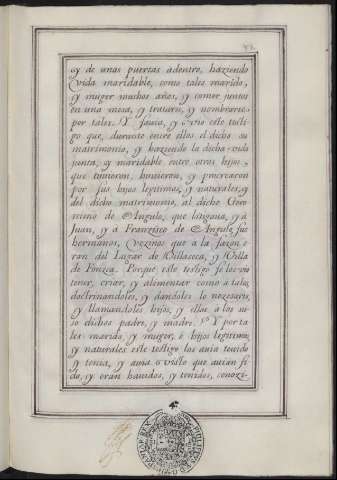 y de unas puertas adentro, haziendo
vida maridable, como tales marido,
y muger muchos años, y comer juntos
en una mesa, y tratarse, y nombrarse
por tales. Y sauia, y vio este testi
go que, durante entre ellos el dicho su
matrimonio, y haziendo la dicha vida
junta, y maridable entre otros hijos,
que tuuieron, huuieron, y procrearon
por sus hijos legitimos, y naturales, y
del dicho matrimonio, al dicho Gero
nimo de Angulo, que litigaua, y á
Juan, y á Franzisco de Angulo sus
hermanos, Vezinos que a la sazon e
ran del Lugar de Villaseca, y Villa
de Fonzea. Porque este testigo se los vio
tener, criar, y alimentar como á tales,
doctrinandoles, y dandoles lo nezesario,
y llamandoles hijos, y ellos a los su
so dichos padre, y madre. Y por ta
les marido, y muger, é hijos legitimos,
y naturales este testigo los auia tenido
y tenia, y auia visto que auian si
do, y eran hauidos, y tenidos, conozi-